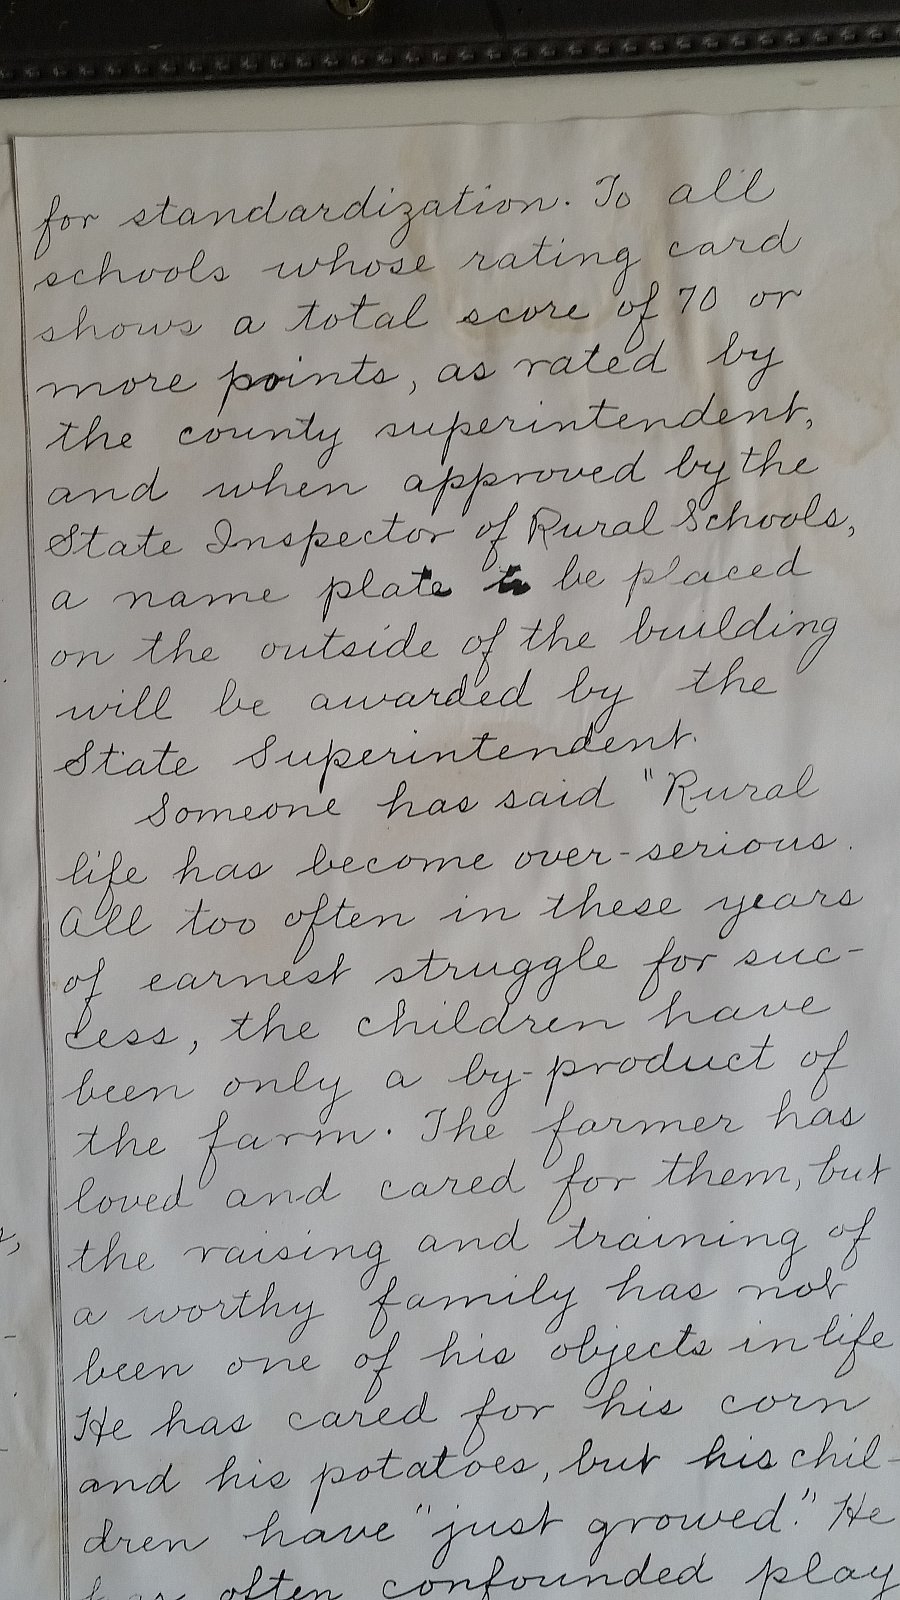 for standardization. To all
schools whose rating card
shows a total score of 70 or
more points, as rated by
the county superintendent,
and when approved by the
State Inspector of Rural Schools,
a name plate to be placed
on the outside of the building
will be awarded by the
State Superintendent.
Someone has said "Rural
life has become over-serious.
All too often in these years
of earnest struggle for suc-
cess, the children have
been only a by-product of
the farm. The farmer has
loved and cared for them, but
the raising and training of
a worthy family has not
been one of his objects in life
He has cared for his corn
and his potatoes, but his chil-
dren have "just growed." He
has often confounded play